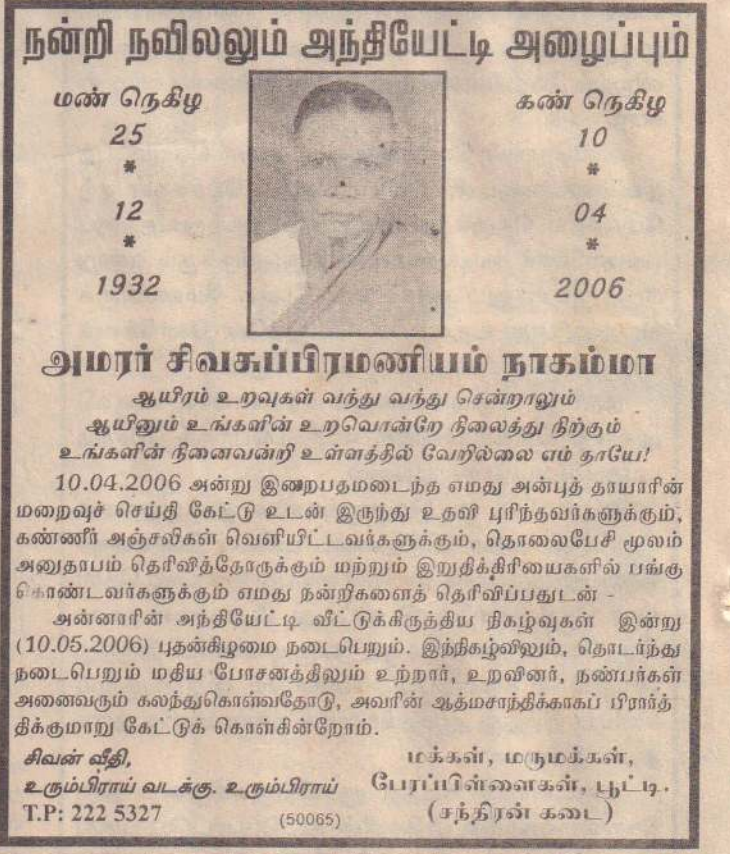 நன்றி நவிலலும் அந்தியேட்டி அழைப்பும்
மண் நெகிழ
25
*
12
*
1932
கண் நெகிழ
10
*
04
*
2006
அமரர் சிவசுப்பிரமணியம் நாகம்மா
ஆயிரம் உறவுகள் வந்து வந்து சென்றாலும்
ஆயினும் உங்களின் உறவொன்றே நிலைத்து நிற்கும்
உங்களின் நினைவன்றி உள்ளத்தில் வேறில்லை எம் தாயே!
10.04.2006 அன்று இறைபதமடைந்த எமது அன்புத் தாயாரின்
மறைவுச் செய்தி கேட்டு உடன் இருந்து உதவி புரிந்தவர்களுக்கும்,
கண்ணீர் அஞ்சலிகள் வெளியிட்டவர்களுக்கும், தொலைபேசி மூலம்
அனுதாபம் தெரிவித்தோருக்கும் மற்றும் இறுதிக்கிரியைகளில் பங்கு
கொண்டவர்களுக்கும் எமது நன்றிகளைத் தெரிவிப்பதுடன் -
அன்னாரின் அந்தியேட்டி வீட்டுக்கிருத்திய நிகழ்வுகள் இன்று
(10.05.2006) புதன்கிழமை நடைபெறும். இந்நிகழ்விலும், தொடர்ந்து
நடைபெறும் மதிய போசனத்திலும் உற்றார், உறவினர், நண்பர்கள்
அனைவரும் கலந்துகொள்வதோடு, அவரின் ஆத்மசாந்திக்காகப் பிரார்த்
திக்குமாறு கேட்டுக் கொள்கின்றோம்.
சிவன் வீதி,
உரும்பிராய் வடக்கு. உரும்பிராய்
T.P: 222 5327
(50065)
மக்கள், மருமக்கள்,
பேரப்பிள்ளைகள், பூட்டி.
(சந்திரன் கடை)